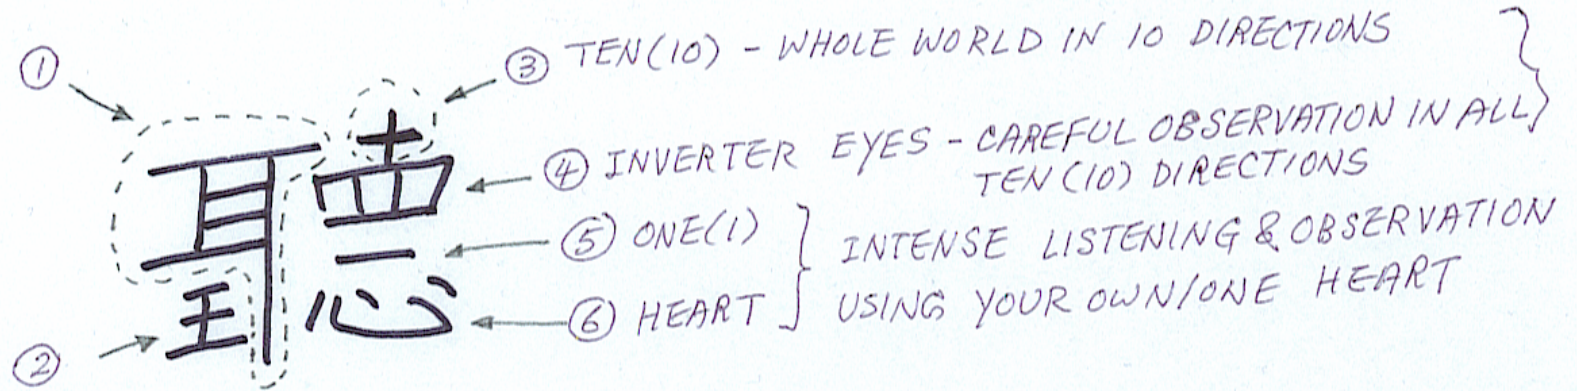 ①
聽
②
③ TEN(10) - WHOLE WORLD IN 10 DIRECTIONS
④ INVERTER EYES - CAREFUL OBSERVATION IN ALL
TEN(10) DIRECTIONS
⑤ ONE(1)
⑥ HEART
INTENSE LISTENING & OBSERVATION
USING YOUR OWN/ONE HEART